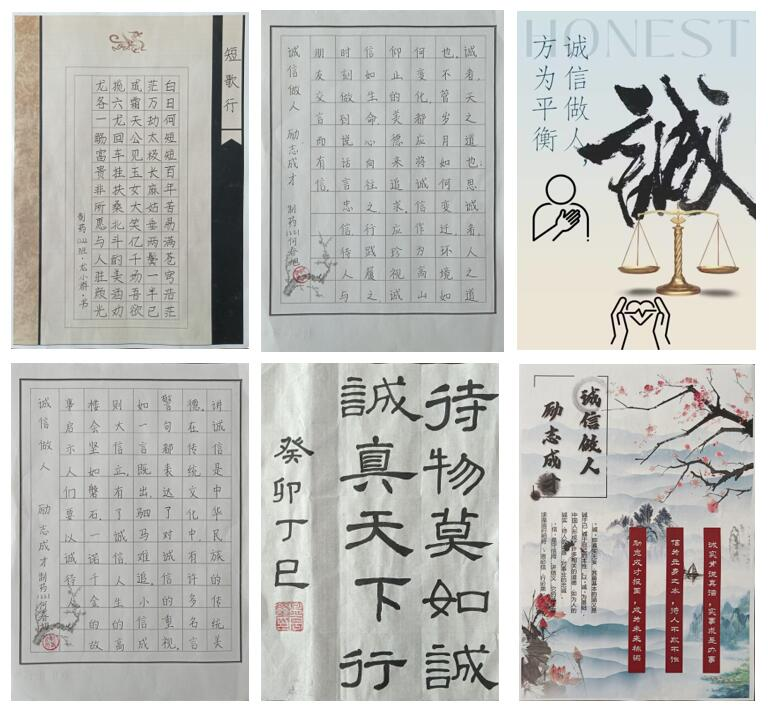 短歌行
白日何短短百年苦易满苍穹浩茫
茫万劫太极长麻姑垂两鬓一半已
成霜天公见玉女大笑亿千场吾欲
揽六龙回车挂扶桑北斗酌美酒劝
龙各一觞富贵非所愿与人驻颜光
诚者，天之道也；思诚者，人之道
也。不管岁月如何变迁，环境如
何变化，都应将诚信作为高山
仰止的美德来追求，应珍视诚
信如生命，心向往之，行践履之
时刻做到说话言忠信，待人与
朋友交言而有信。
诚信做人 励志成才
HONEST
诚信做人，
方为平衡
誠
讲诚信是中华民族的传统美
德。在传统文化中，有许多名言
警句都表达了对诚信的重视。
如一言既出，驷马难追，小信成
则大信立。有了诚信，人生的高
楼会坚如磐石，一诺千金的故
事启示人们要以诚待人。
诚信做人 励志成才
待物莫如誠
誠真天下行
癸卯丁巳
诚信做人
励志成才
诚实肯说真话，实事求是办事
信为立身之本，待人不欺不诈
励志成才报国，成为未来栋梁